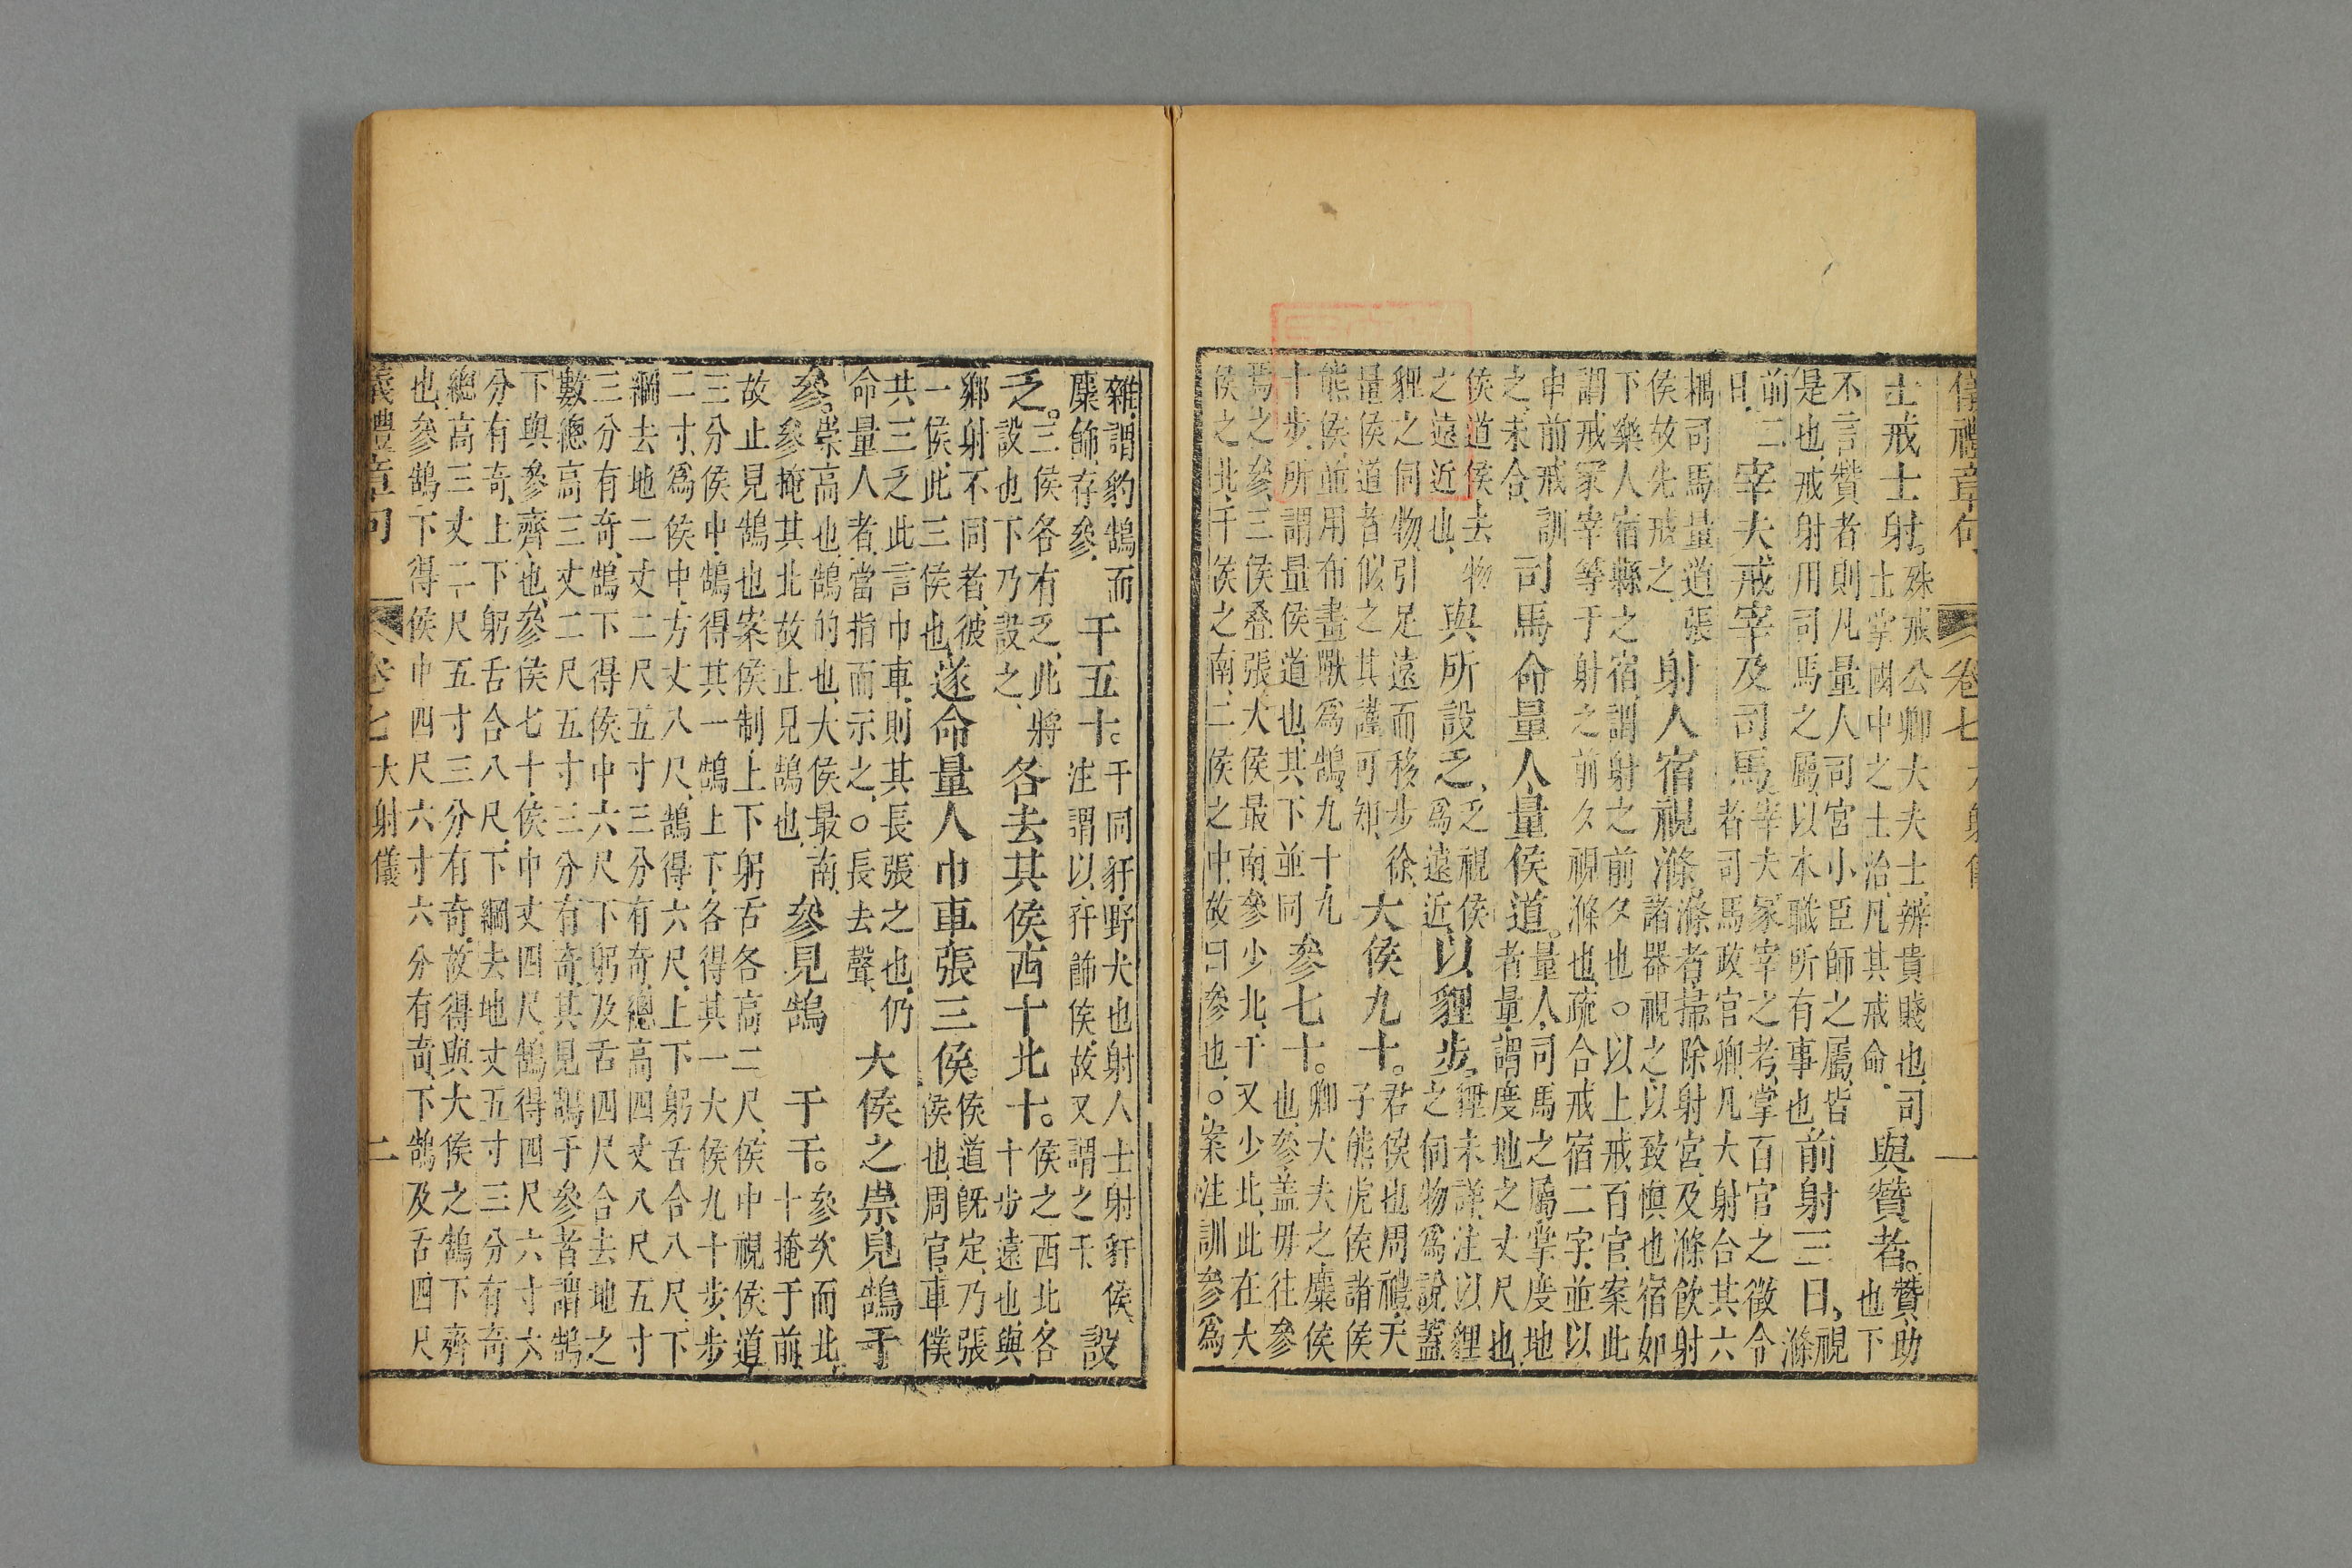 儀禮章句 卷七 大射儀 一
士戒士射。殊戒公卿大夫士辨貴賤也司
士掌國中之士治凡其戒命
與贊者。贊助
也下
不言贊者則凡量人司宮小臣師之屬皆
是也戒射用司馬之屬以本職所有事也
前射三日,視
滌
前二
日
宰夫戒宰及司馬,宰夫冢宰之考掌百官之徵令
者司馬政官卿凡大射合其六
耦司馬量道張
侯故先戒之
射人宿視滌,滌者掃除射宮及滌飲射
諸器視之以致慎也宿如
下樂人宿縣之宿謂射之前夕也○以上戒百官案此
謂戒冢宰等于射之前夕視滌也疏合戒宿二字並以
申前戒訓
之未合
司馬命量人量侯道。量人司馬之屬掌度地
者量謂度地之丈尺也
侯道侯去物
之遠近也
與所設乏,乏視侯
爲遠近
以貍步,貍未詳注以貍
之伺物爲說蓋
貍之伺物引足遠而移步徐
量侯道者似之其謹可知
大侯九十。君侯也周禮天
子熊虎侯諸侯
熊侯並用布畫獸爲鵠九十九
十步所謂量侯道也其下並同
參七十。卿大夫之麋侯
也參蓋毋往參
焉之參三侯叠張大侯最南參少北干又少北此在大
侯之北干侯之南二侯之中故曰參也○案注訓參爲
雜謂豹鵠而
麋飾存參
干五十。干同豻野犬也射人士射豻侯
注謂以豻飾侯故又謂之干
設
乏。三侯各有乏此將
設也下乃設之
各去其侯西十北十。侯之西北各
十步遠也與
鄉射不同者彼
一侯此三侯也
遂命量人巾車張三侯。侯道旣定乃張
侯也周官車僕
共三乏此言巾車則其長張之也仍
命量人者當指而示之○長去聲
大侯之崇見鵠于
參,崇高也鵠的也大侯最南
參掩其北故止見鵠也
參見鵠于干。參次而北
十掩于前
故止見鵠也案侯制上下躬舌各高二尺侯中視侯道
三分侯中鵠得其一鵠上下各得其一大侯九十步步
二寸爲侯中方丈八尺鵠得六尺上下躬舌合八尺下
綱去地二丈二尺五寸三分有奇總高四丈八尺五寸
三分有奇鵠下得侯中六尺下躬及舌四尺合去地之
數總高三丈二尺五寸三分有奇其見鵠于參者謂鵠
下與參齊也參侯七十侯中丈四尺鵠得四尺六寸六
分有奇上下躬舌合八尺下綱去地丈五寸三分有奇
總高三丈二尺五寸三分有奇故得與大侯之鵠下齊
也參鵠下得侯中四尺六寸六分有奇下鵠及舌四尺
儀禮章句 卷七 大射儀 二